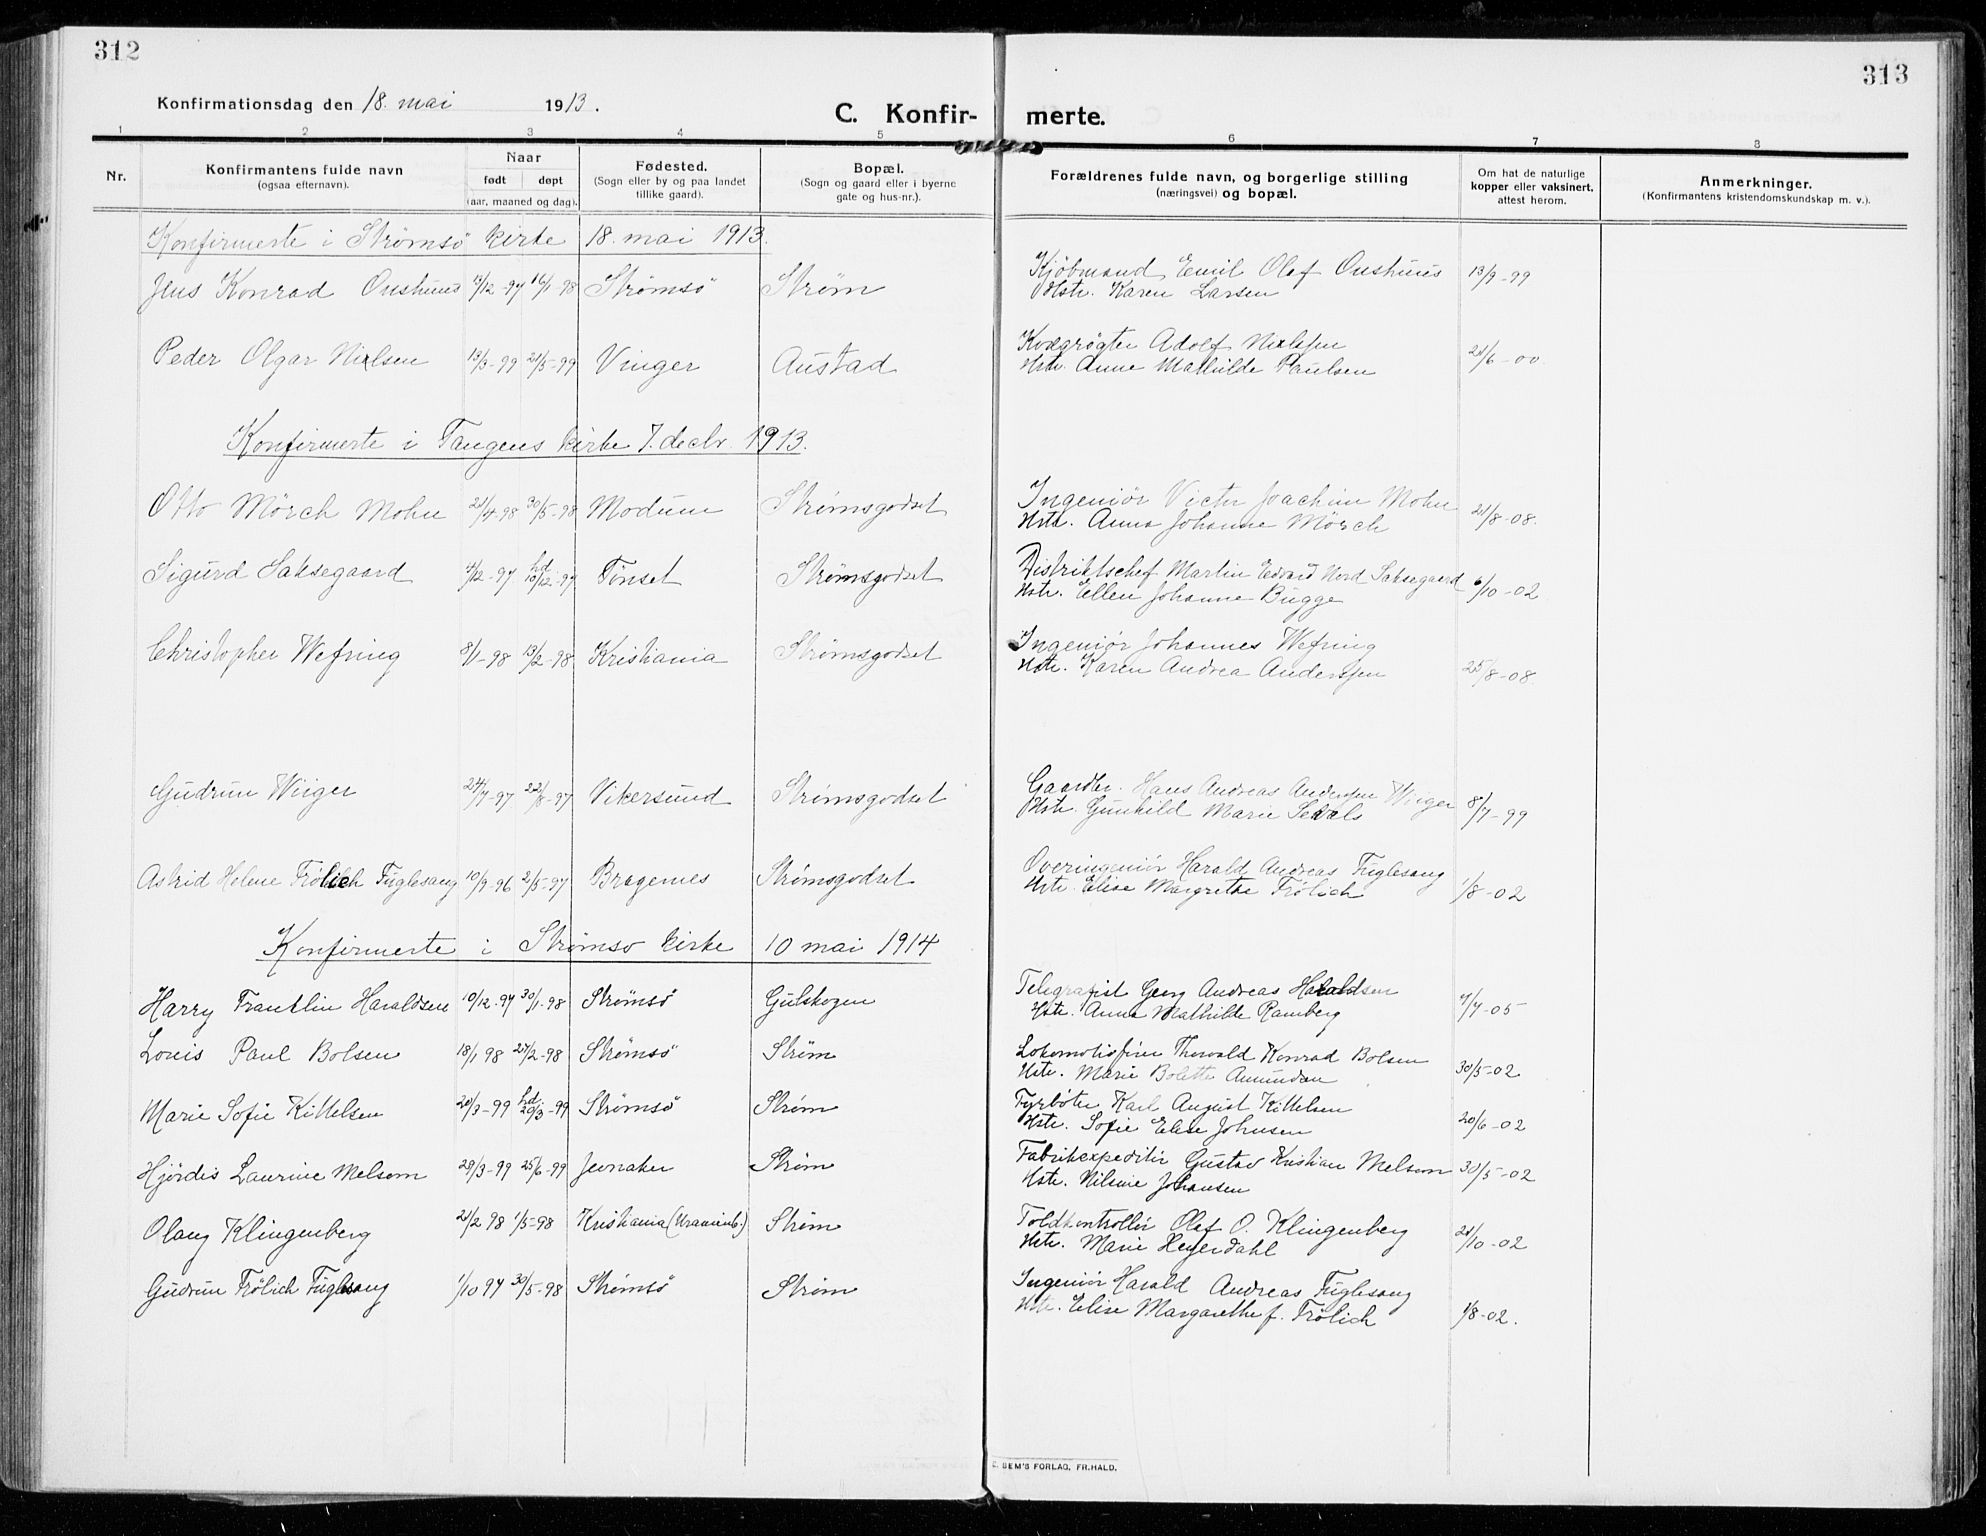 312
313
Konfirmationsdag den 18. mai 1913.
C. Konfir- merte.
1 2 3 4 5 6 7 8
Nr.
Konfirmantens fulde navn
(ogsaa efternavn).
Naar
født døpt
(aar, maaned og dag).
Fødested.
(Sogn eller by og paa landet
tillike gaard).
Bopæl.
(Sogn og gaard eller i byerne
gate og hus-nr.).
Forældrenes fulde navn, og borgerlige stilling
(næringsvei) og bopæl.
Om hat de naturlige
kopper eller vaksinert,
attest herom.
Anmerkninger.
(Konfirmantens kristendomskundskap m. v.).
Konfirmerte i Strømsø kirke 18. mai 1913.
Jens Konrad Onshuus 13/12-97 16/1-98 Strømsö Strøm Kjöbmand Emil Olaf Onshuus 13/9-99
Hstr. Karen Larsen
Peder Olgar Nielsen 13/3-99 21/5-99 Vinger Austad Kvægrögter Adolf Nielsen 21/6-00.
Hstr. Anne Mathilde Paulsen
Konfirmerte i Tangens kirke 7. decbr. 1913.
Otto Mörch Mohn 21/4-98 30/5-98 Modum Strømsgodset Ingeniör Victor Joachim Mohn 21/8-08.
Hstr. Anna Johanne Mörch
Sigurd Saksegaard 4/12-97 hd. 10/12-97 Tönset Strømsgodset Distriktschef Martin Edvard Nord Saksegaard 6/10-02
Hstr. Ellen Johanne Bugge
Christopher Wefring 8/1-98 13/2-98 Kristiania Strømsgodset Ingeniör Johannes Wefring 25/8-08.
Hstr. Karen Andrea Anderssen
Gudrun Wiiger 24/7-97 22/8-97 Vikersund Strømsgodset Gaardbr. Hans Andreas Anderssen Wiiger 8/7-99
Hstr. Gunhild Marie
Astrid Helene Frölich Fuglesang 10/9-96 2/5-97 Bragernes Strømsgodset Overingeniör Harald Andreas Fuglesang 1/8-02
Hstr. Elise Margrethe Frölich
Konfirmerte i Strømsø kirke 10 mai 1914
Harry Franklin Haraldsen 10/12-97 30/1-98 Strömsö Gulskogen Telegrafist Georg Andreas Haraldsen 7/7-05
Hstr. Anna Mathilde Ramberg
Louis Paul Bolsen 18/1 98 27/2-98 Strömsö Ström Lokomotivfører Thorvald Konrad Bolsen 30/5-02
Hstr. Marie Bolette Amundsen
Marie Sofie Kittelsen 20/3-99 hd. 20/3-99 Strömsö Strøm Fyrböter Karl August Kittelsen 20/6-02
Hstr. Sofie Elise Johnsen
Hjördis Laurine Melsom 29/3-99 25/6-99 Jevnaker Strøm Fabrikexpeditör Gustav Kristian Melsom 30/5-02
Hstr. Nilsine Johansen
Olaug Klingenberg 21/2 98 1/5-98 Kristiania (Uranienb.) Strøm Toldkontrollör Olaf O. Klingenberg 21/10-02
Hstr. Marie Heyerdahl
Gudrun Frölich Fuglesang 1/10 97 30/5-98 Strømsö Strøm Ingeniör Harald Andreas Fuglesang 1/8-02.
Hstr. Elise Margarethe f. Frölich
E. SEM'S FORLAG, FR.HALD.